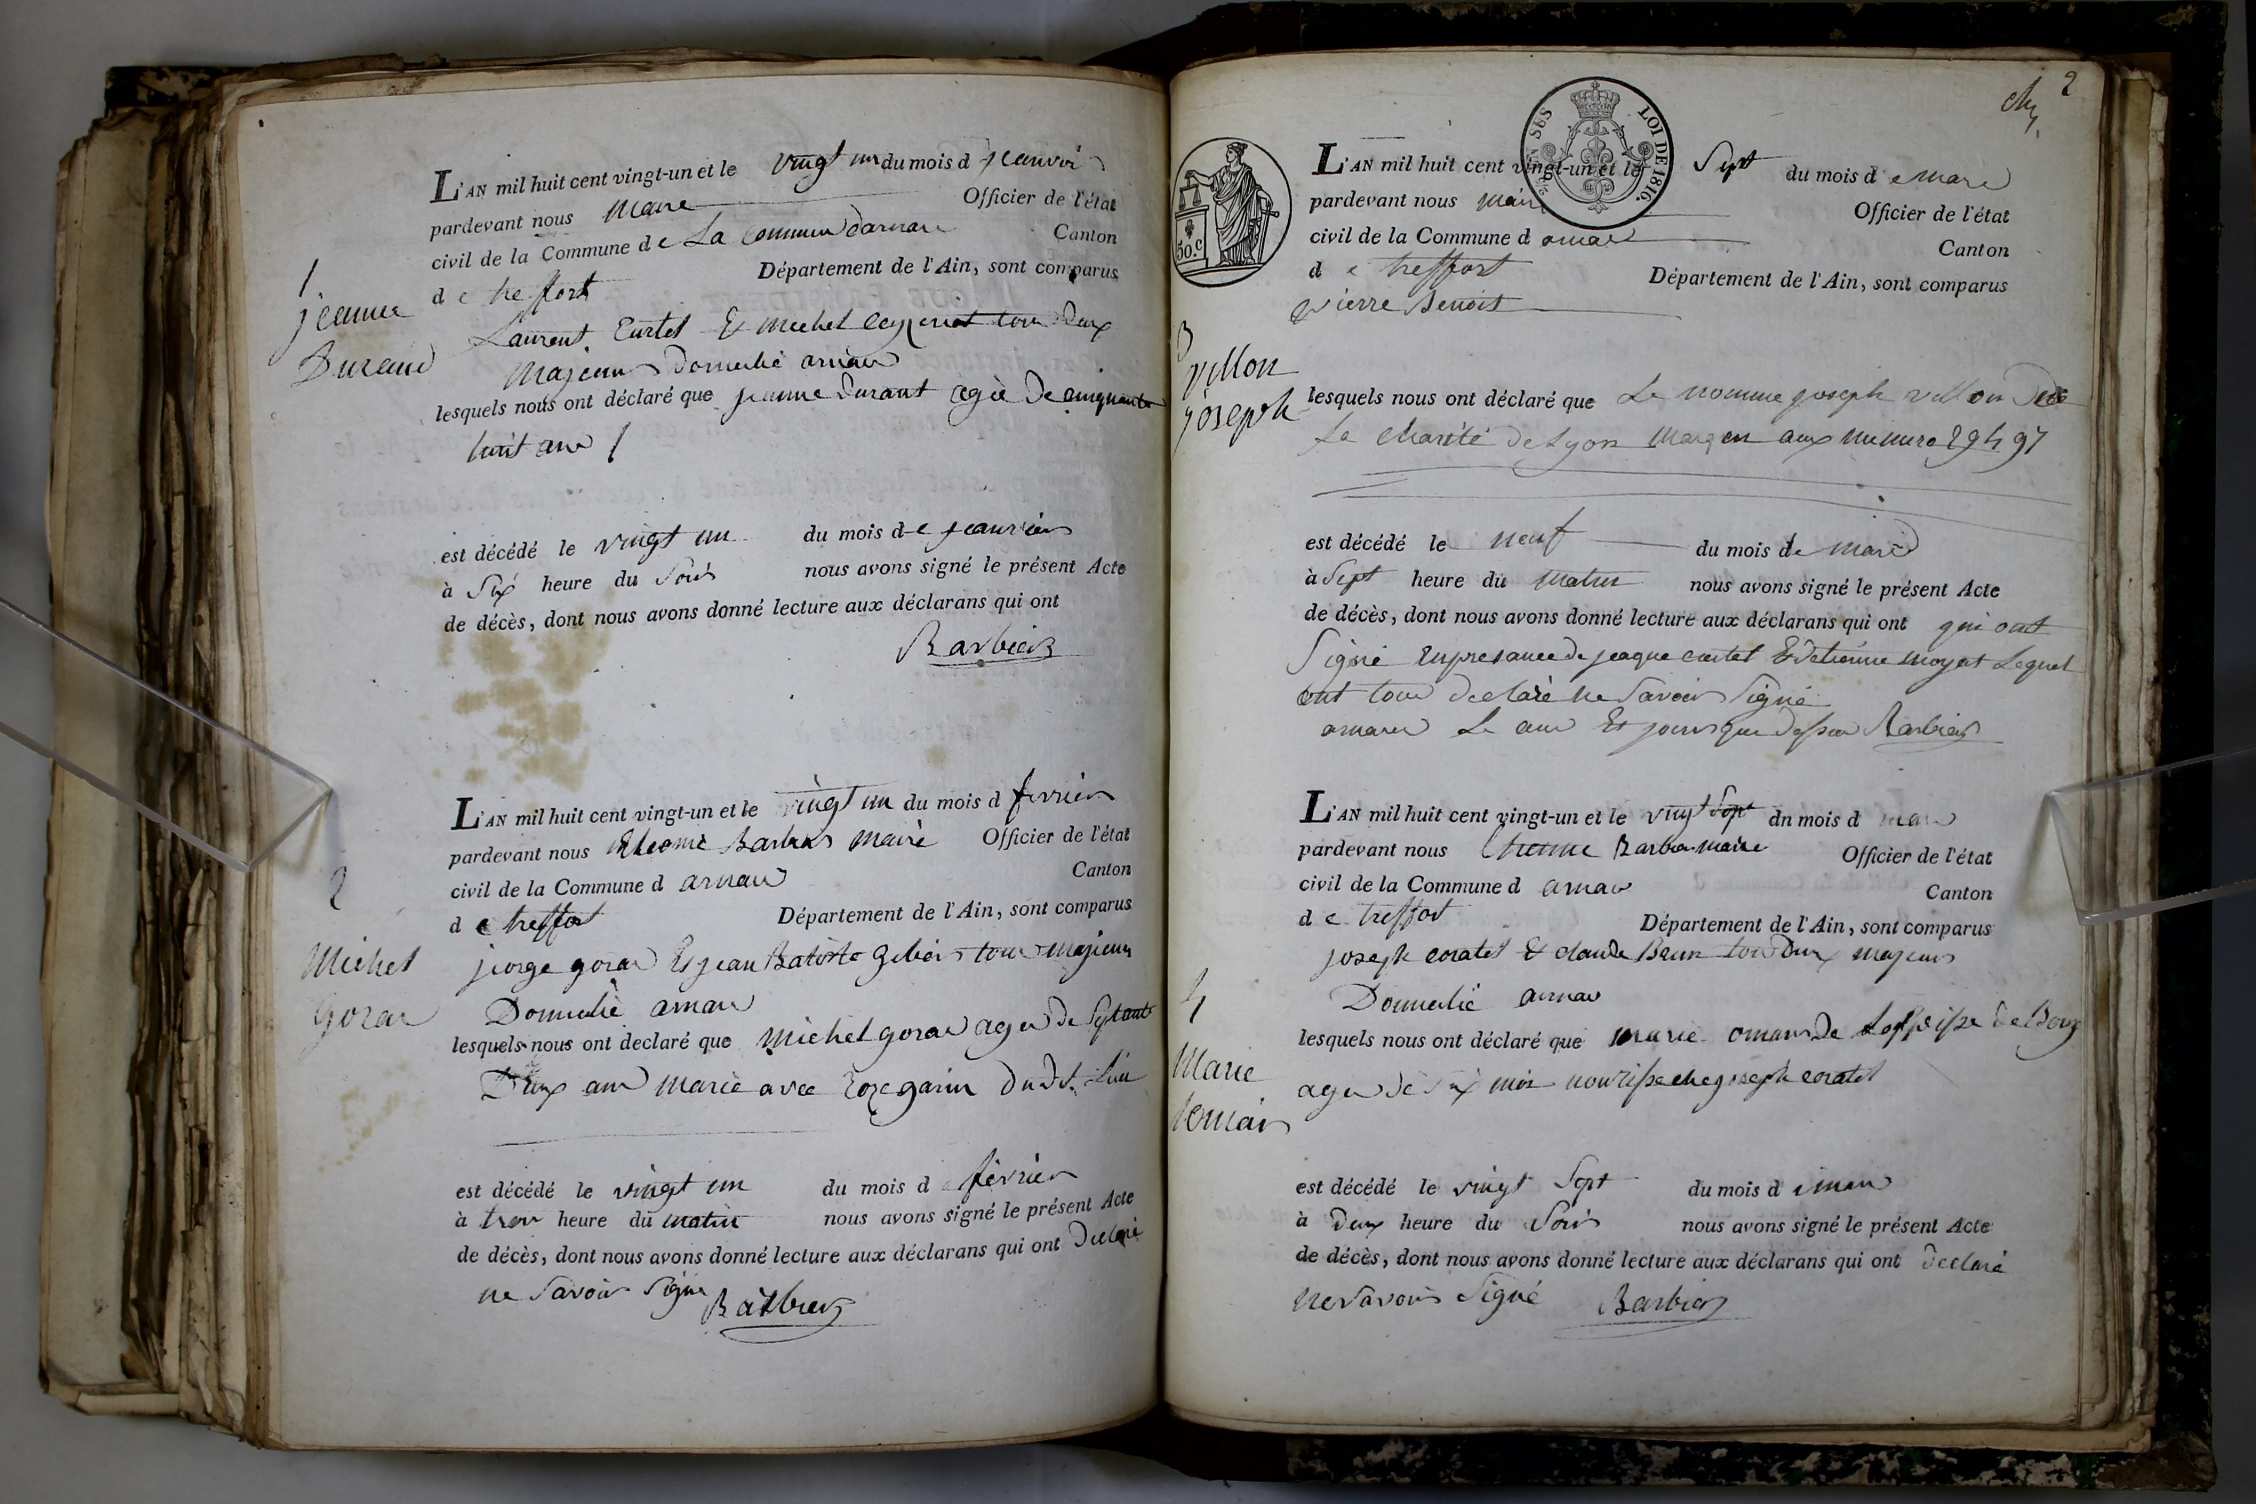 1
jeanne
Durand
L'AN mil huit cent vingt-un et le vingt un du mois d jeanvier
pardevant nous Maire Officier de l'état
civil de la Commune de La Commune darnan Canton
d e treffort Département de l'Ain, sont comparus
Laurent Curtet Et Michel tous Deux
Majeurs Domicilié arnan
lesquels nous ont déclaré que jeanne Durant agée De cinquante
huit ans
est décédé le vingt un du mois de jeanvier
à Six heure du Soir nous avons signé le présent Acte
de décès, dont nous avons donné lecture aux déclarans qui ont
Barbier
2
Michel
goran
L'AN mil huit cent vingt-un et le vingt un du mois d fevrier
pardevant nous Barbier Maire Officier de l'état
civil de la Commune d arnan Canton
d e treffort Département de l'Ain, sont comparus
jorge goran Et jean Batiste tous Majeurs
Domicilié arnan
lesquels nous ont déclaré que Michel goran agé De Septante
Deux ans Marié avec Roze garin Du dt. Lieu
est décédé le vingt un du mois d fevrier
à trois heure du Matin nous avons signé le présent Acte
de décès, dont nous avons donné lecture aux déclarans qui ont Declaré
ne Savoir Signe
Barbier
2
TIMBRE
LOI DE 1816.
50.c
3
villon
joseph
L'AN mil huit cent vingt-un et le Sept du mois d e mars
pardevant nous Maire Officier de l'état
civil de la Commune d arnan Canton
d e treffort Département de l'Ain, sont comparus
pierre Benoit
lesquels nous ont déclaré que Le nomme joseph villon De
La Charité de Lyon aux Numero 29497
est décédé le neuf du mois de mars
à Sept heure du Matin nous avons signé le présent Acte
de décès, dont nous avons donné lecture aux déclarans qui ont qui ont
Signé En presance de jeaque curtet Et Detienne moyat Lequel
ont tous declaré ne Savoir Signé
arnan Le ans Et jours que Dessus Barbier
4
Marie
L'AN mil huit cent vingt-un et le vingt Sept du mois d mars
pardevant nous Etienne Barbier Maire Officier de l'état
civil de la Commune d arnan Canton
d e treffort Département de l'Ain, sont comparus
joseph coratet Et claude Brun tous Deux majeurs
Domicilié arnan
lesquels nous ont déclaré que marie De Lospisse De Bourg
agée De Six mois nourisse che joseph coratet
est décédé le vingt Sept du mois d e mars
à Deux heure du Soir nous avons signé le présent Acte
de décès, dont nous avons donné lecture aux déclarans qui ont declaré
ne Savoir Signé Barbier